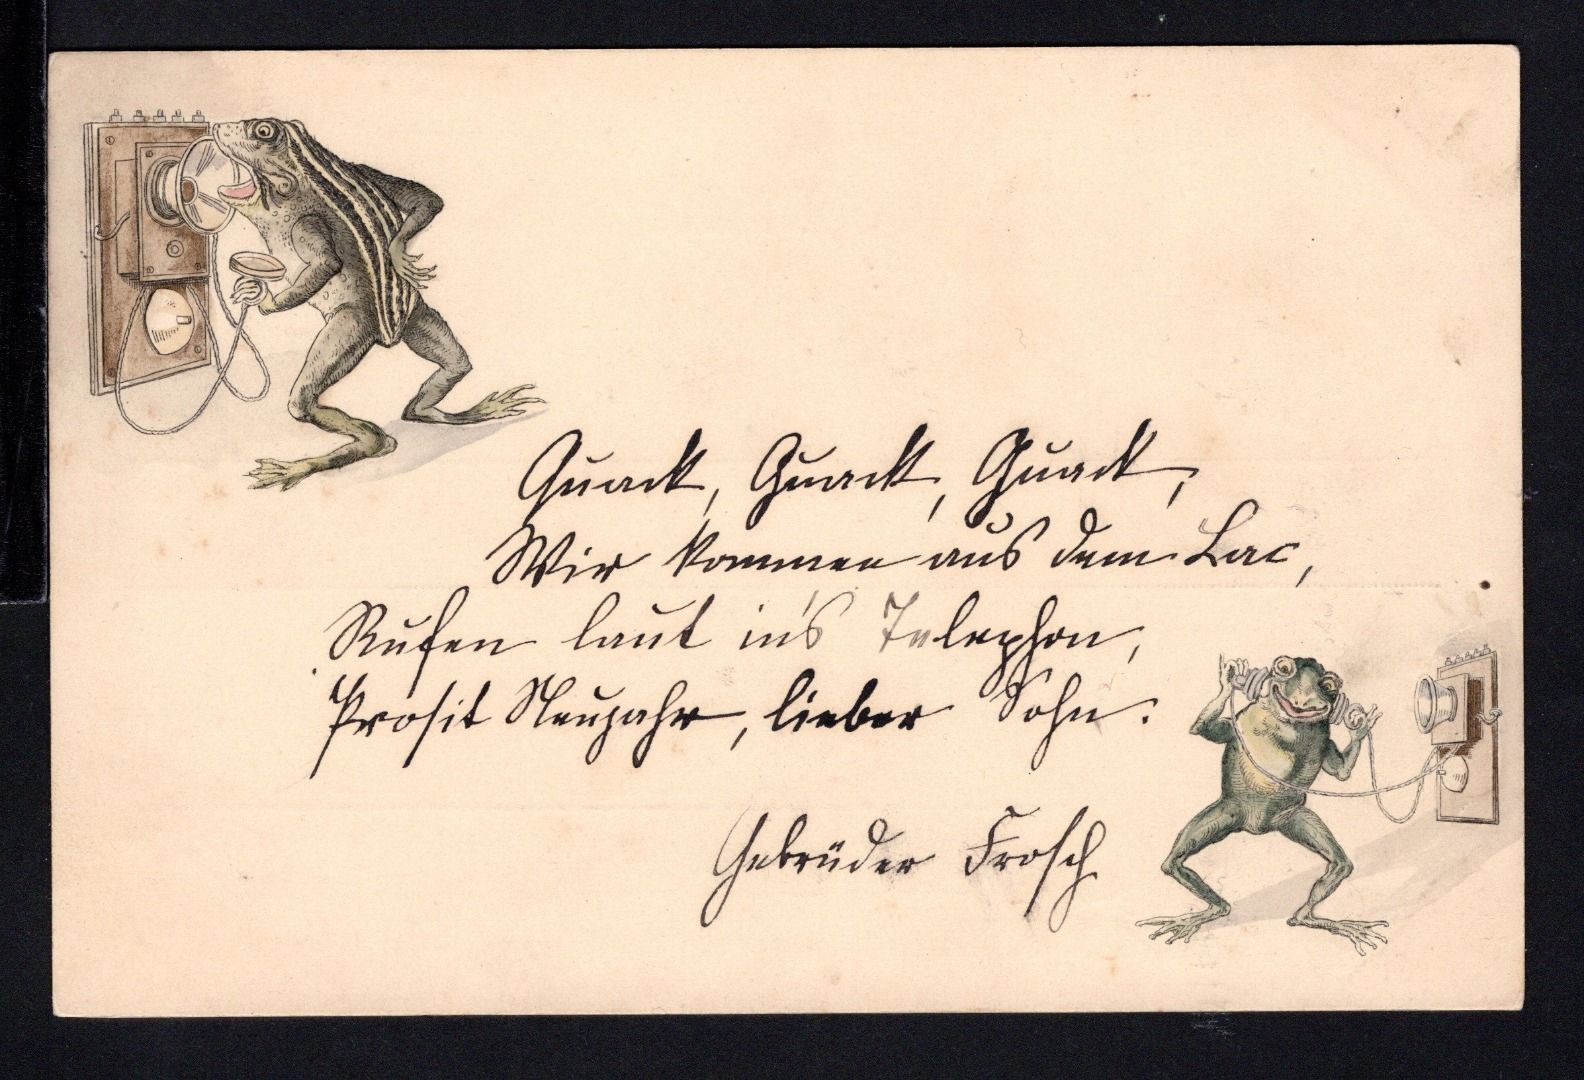 Quack, Quack, Quack,
Wir kommen aus dem Lac,
Rufen laut in's Telephon,
Prosit Neujahr, lieber Sohn.
Gebrüder Frosch